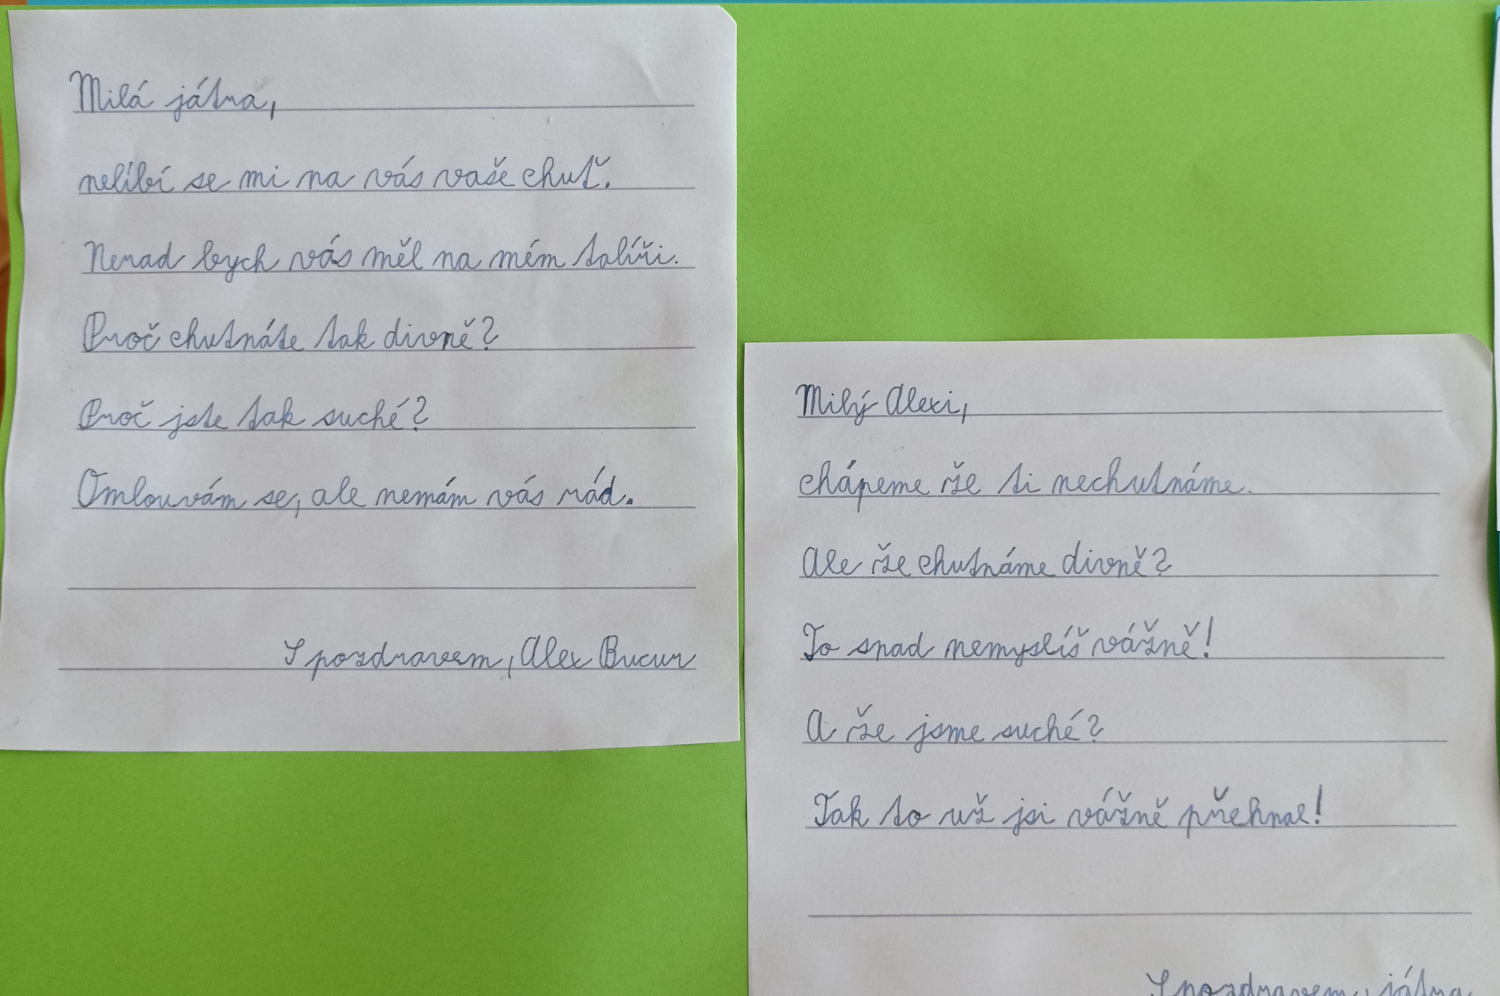 Milá játra,
nelíbí se mi na vás vaše chuť.
Nerad bych vás měl na mém talíři.
Proč chutnáte tak divně?
Proč jste tak suché?
Omlouvám se, ale nemám vás rád.
S pozdravem, Alex Bucur
Milý Alexi,
chápeme že ti nechutnáme.
Ale že chutnáme divně?
To snad nemyslíš vážně!
A že jsme suché?
Tak to už jsi vážně přehnal!
S pozdravem, játra